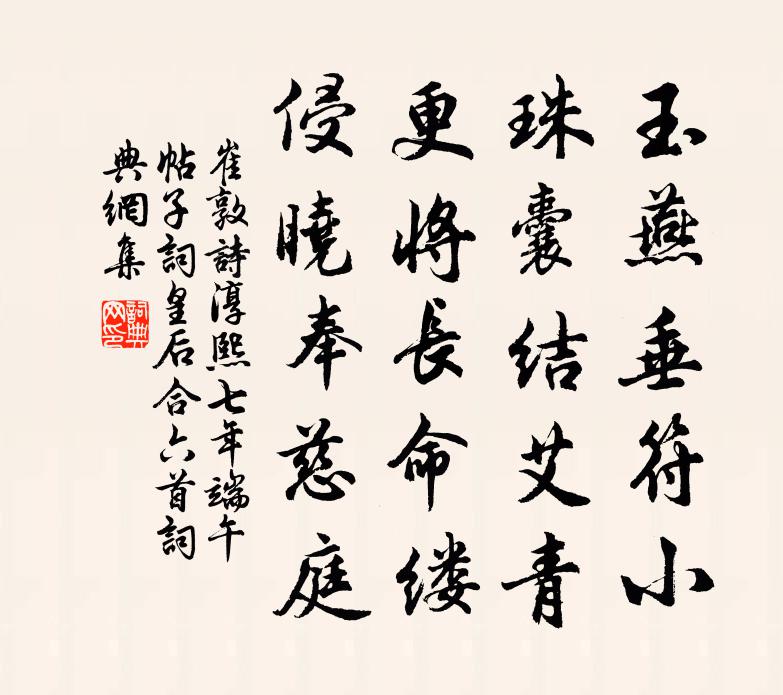 玉燕垂符小
珠囊结艾青
更將長命缕
侵曉奉慈庭
崔敦詩淳熙七年端午
帖子詞皇后合六首詞
典網集
詞典
网印